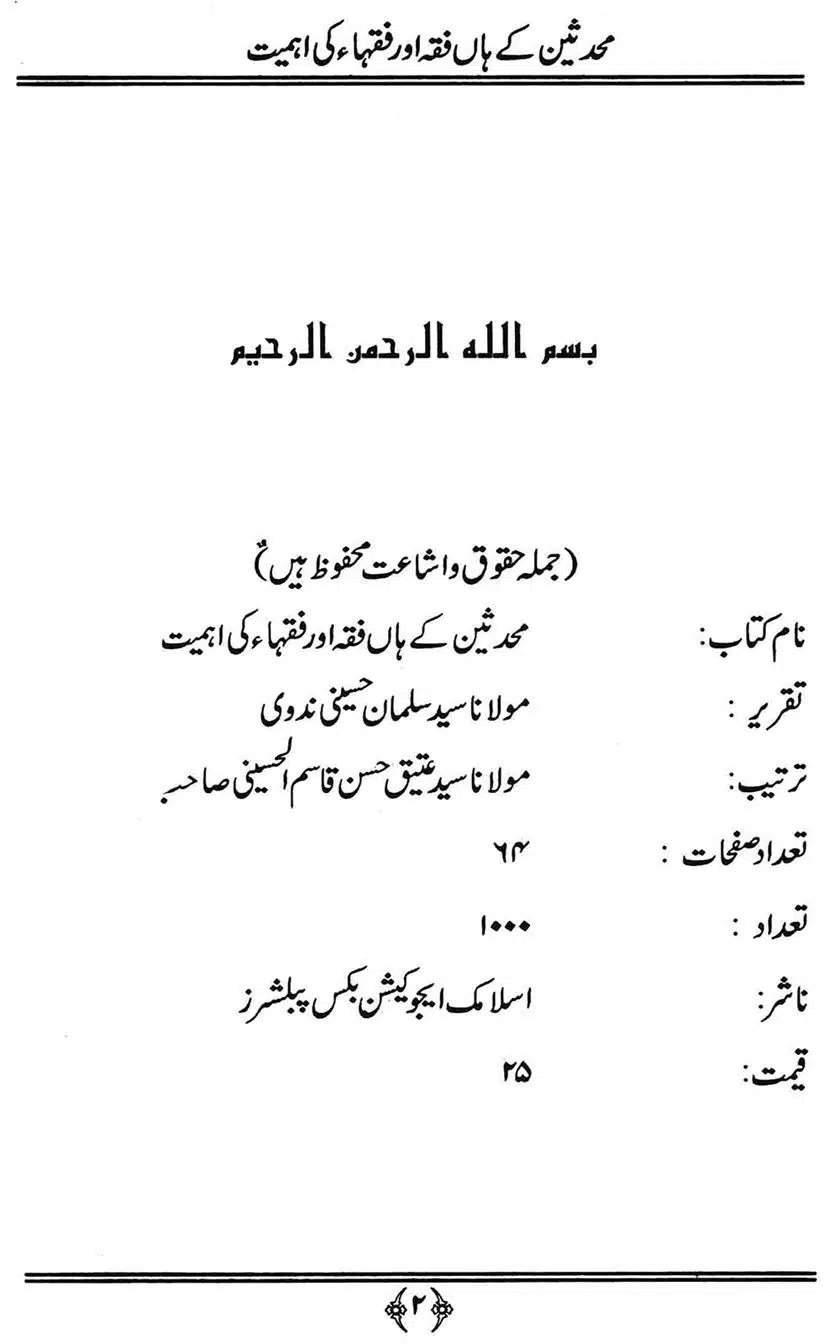 محدثین کے ہاں فقہ اور فقہاء کی اہمیت
بسم الله الرحمن الرحيم
(جملہ حقوق و اشاعت محفوظ ہیں)
نام کتاب: محدثین کے ہاں فقہ اور فقہاء کی اہمیت
تقریر : مولانا سید سلمان حسینی ندوی
ترتیب: مولانا سید عتیق حسن قاسم الحسینی صاحب
تعداد صفحات : ۶۴
تعداد : ۱۰۰۰
ناشر: اسلامک ایجوکیشن بکس پبلشرز
قیمت: ۲۵
۲